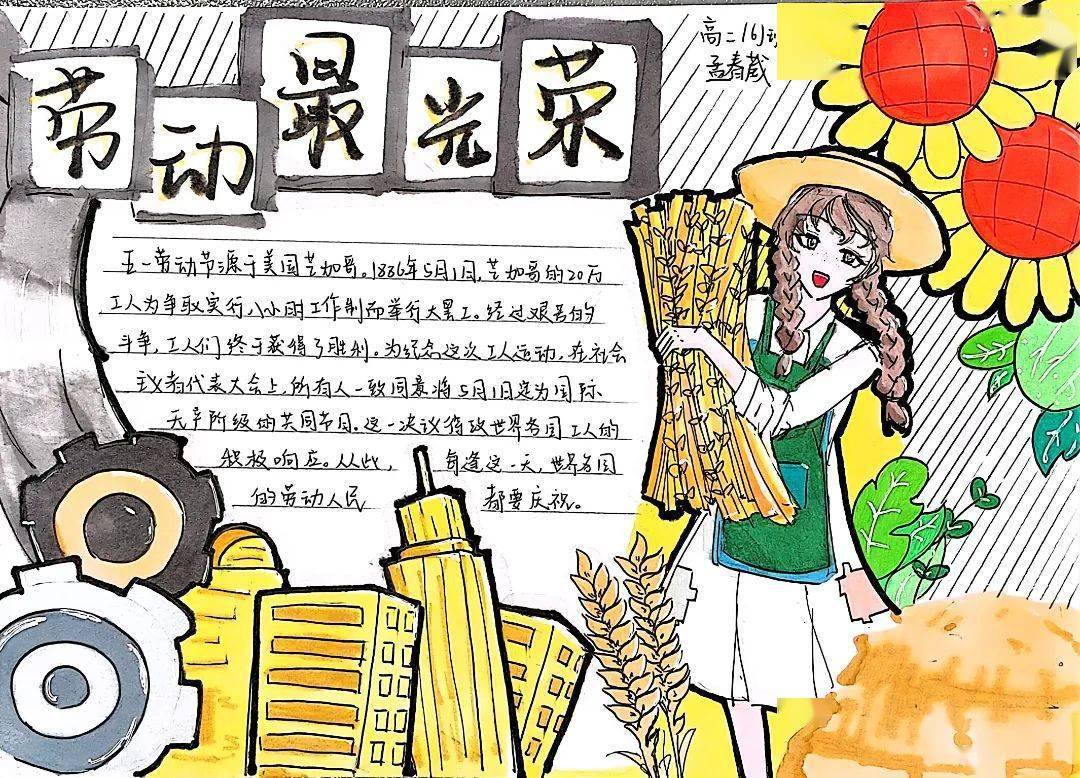 劳动最光荣
高二16
孟春葳
五一劳动节源于美国芝加哥。1886年5月1日,芝加哥的20万
工人为争取实行八小时工作制而举行大罢工。经过艰苦的
斗争,工人们终于获得了胜利。为纪念这次工人运动,在社会
议者代表大会上,所有人一致同意将5月1日定为国际
无产阶级的共同节日。这一决议得致世界各国工人的
积极响应。从此,每逢这一天,世界各国
的劳动人民都要庆祝。